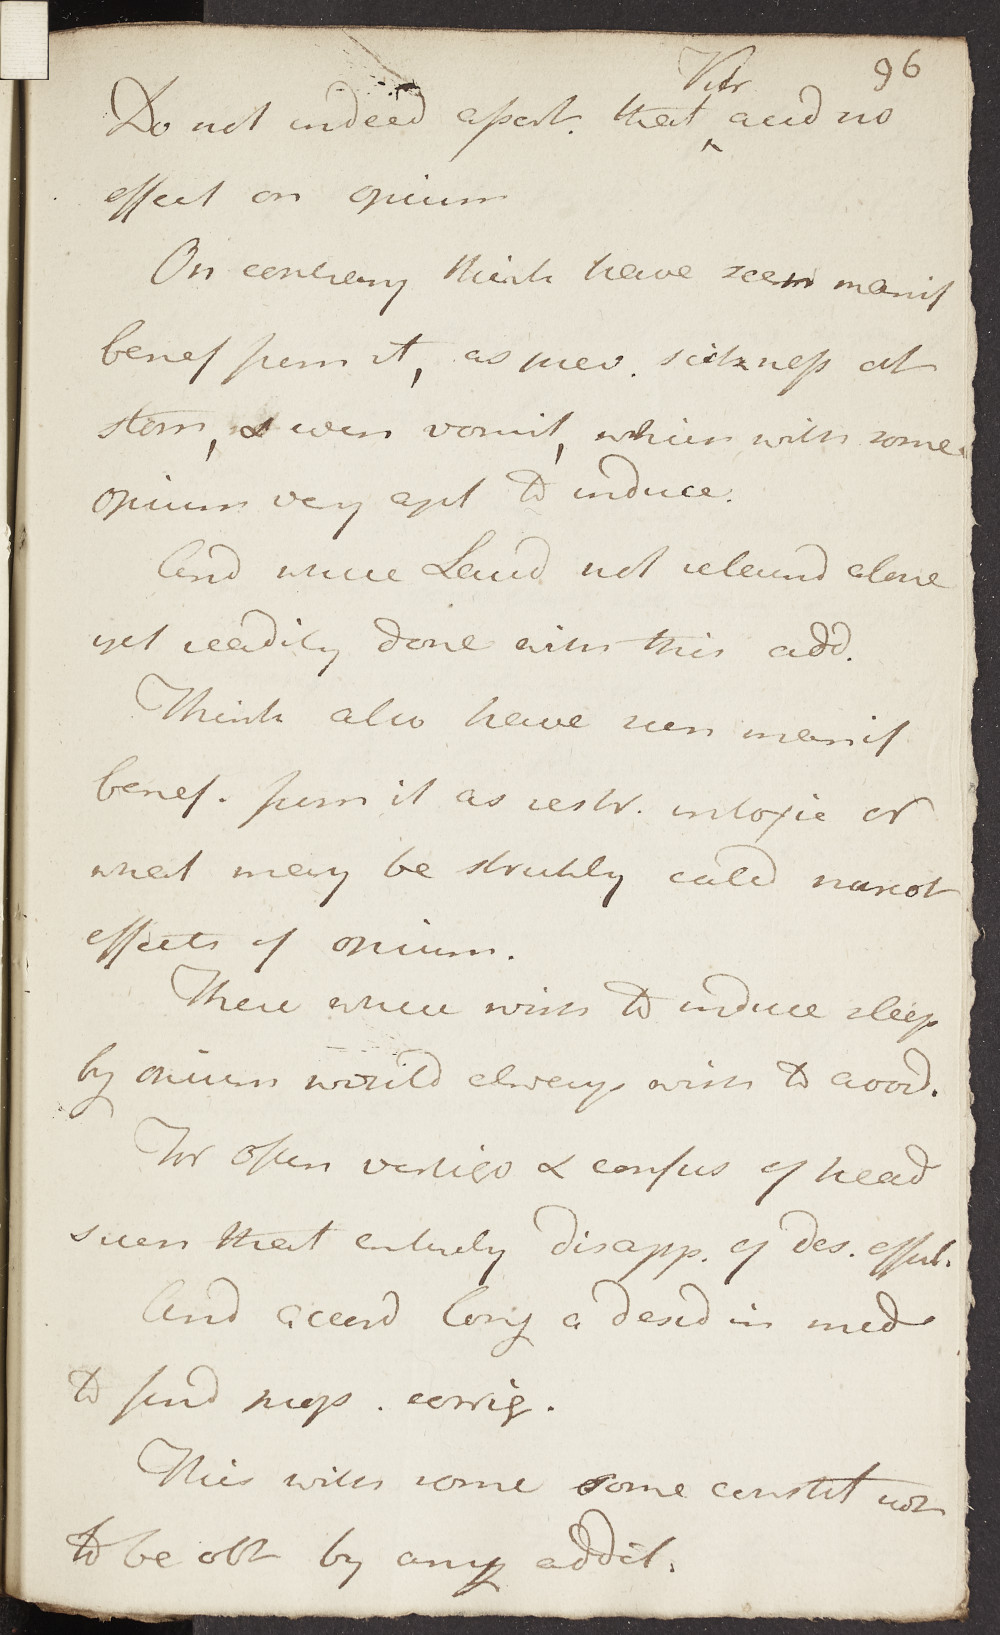 96
Do not indeed assert. that ^Vitr acid no
effect on opium
On contrary think have seen manif
benef from it, as prev. sickness at
stom, & even vomit, which with some
opium very apt to induce.
And where Laud not retaind alone
yet readily done with this add.
Think also have seen manif
benef. from it as restr. intoxic or
what may be strictly calld narcot
effects of opium.
These where wish to induce sleep
by opium would always wish to avoid.
For often vertigo & confus of head
seen that entirely disapp. of des. effect.
And accord long a desid in med
to find prop. corrig.
This with some some constit not
to be obt by any addit.